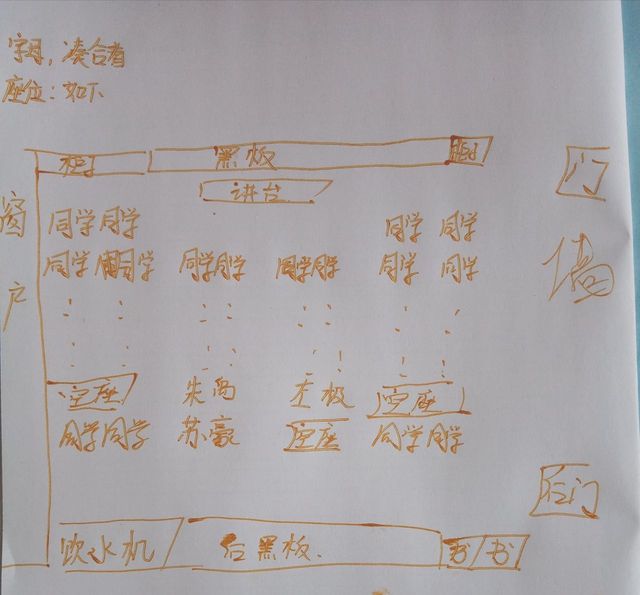 字母，凑合看
座位：如下
柜子 黑板 柜子
讲台
门
窗户
墙
同学 同学 同学 同学
同学 同学 同学 同学 同学 同学 同学 同学
空座 朱 空座
同学 同学 苏豪 空座 同学 同学
后门
饮水机 后黑板 书 书